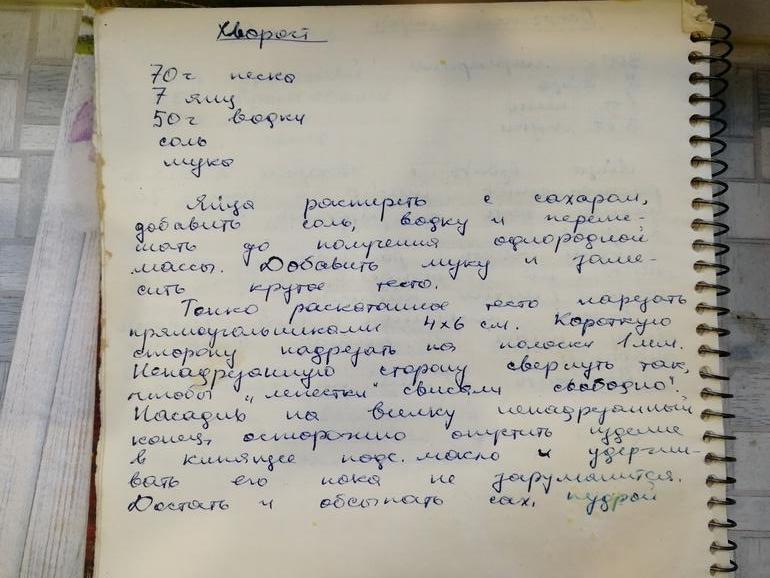 Хворост
70 г песка
7 яиц
50 г водки
соль
мука
Яйца растереть с сахаром,
добавить соль, водку и переме-
шать до получения однородной
массы. Добавить муку и заме-
сить крутое тесто.
Тонко раскатанное тесто нарезать
прямоугольниками 4х6 см. Короткую
сторону надрезать на полоски 1 мм.
Ненадрезанную сторону свернуть так,
чтобы "лепестки" свисали свободно!
Насадив на вилку ненадрезанный
конец, осторожно опустить изделие
в кипящее подс. масло и удержи-
вать его пока не зарумянится.
Достать и обсыпать сах. пудрой